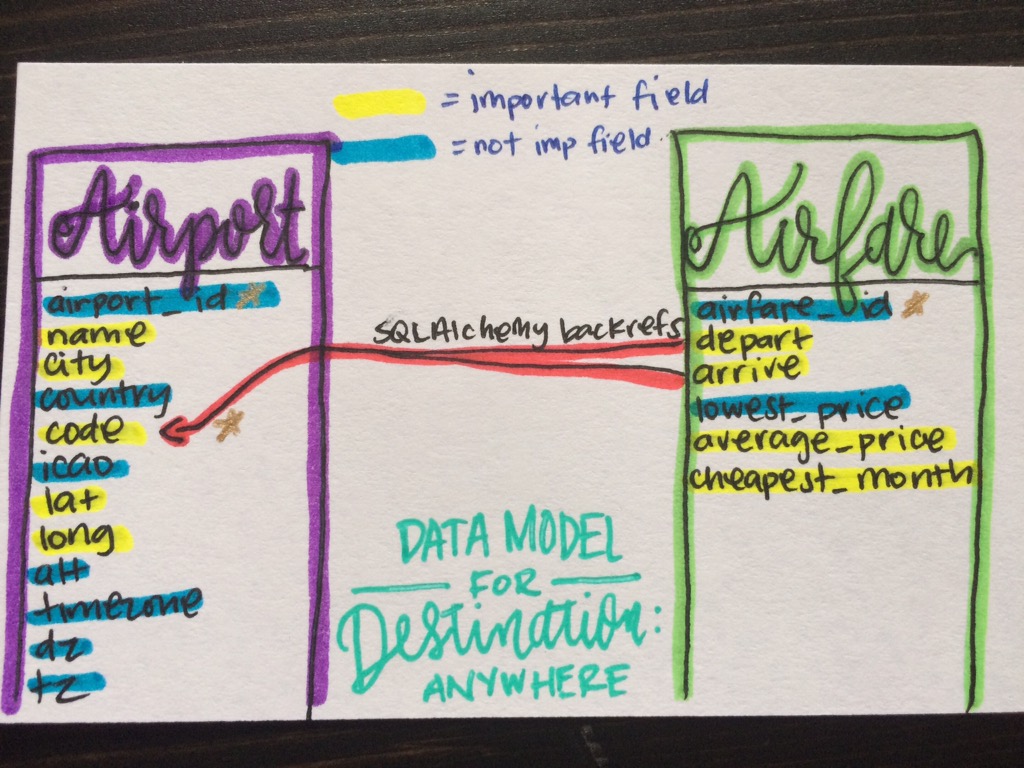 = important field
= not imp field
Airport
airport_id
name
city
country
code
icao
lat
long
alt
timezone
dz
tz
SQLAlchemy backrefs
Airfare
airfare_id
depart
arrive
lowest_price
average_price
cheapest_month
DATA MODEL
FOR
Destination:
ANYWHERE